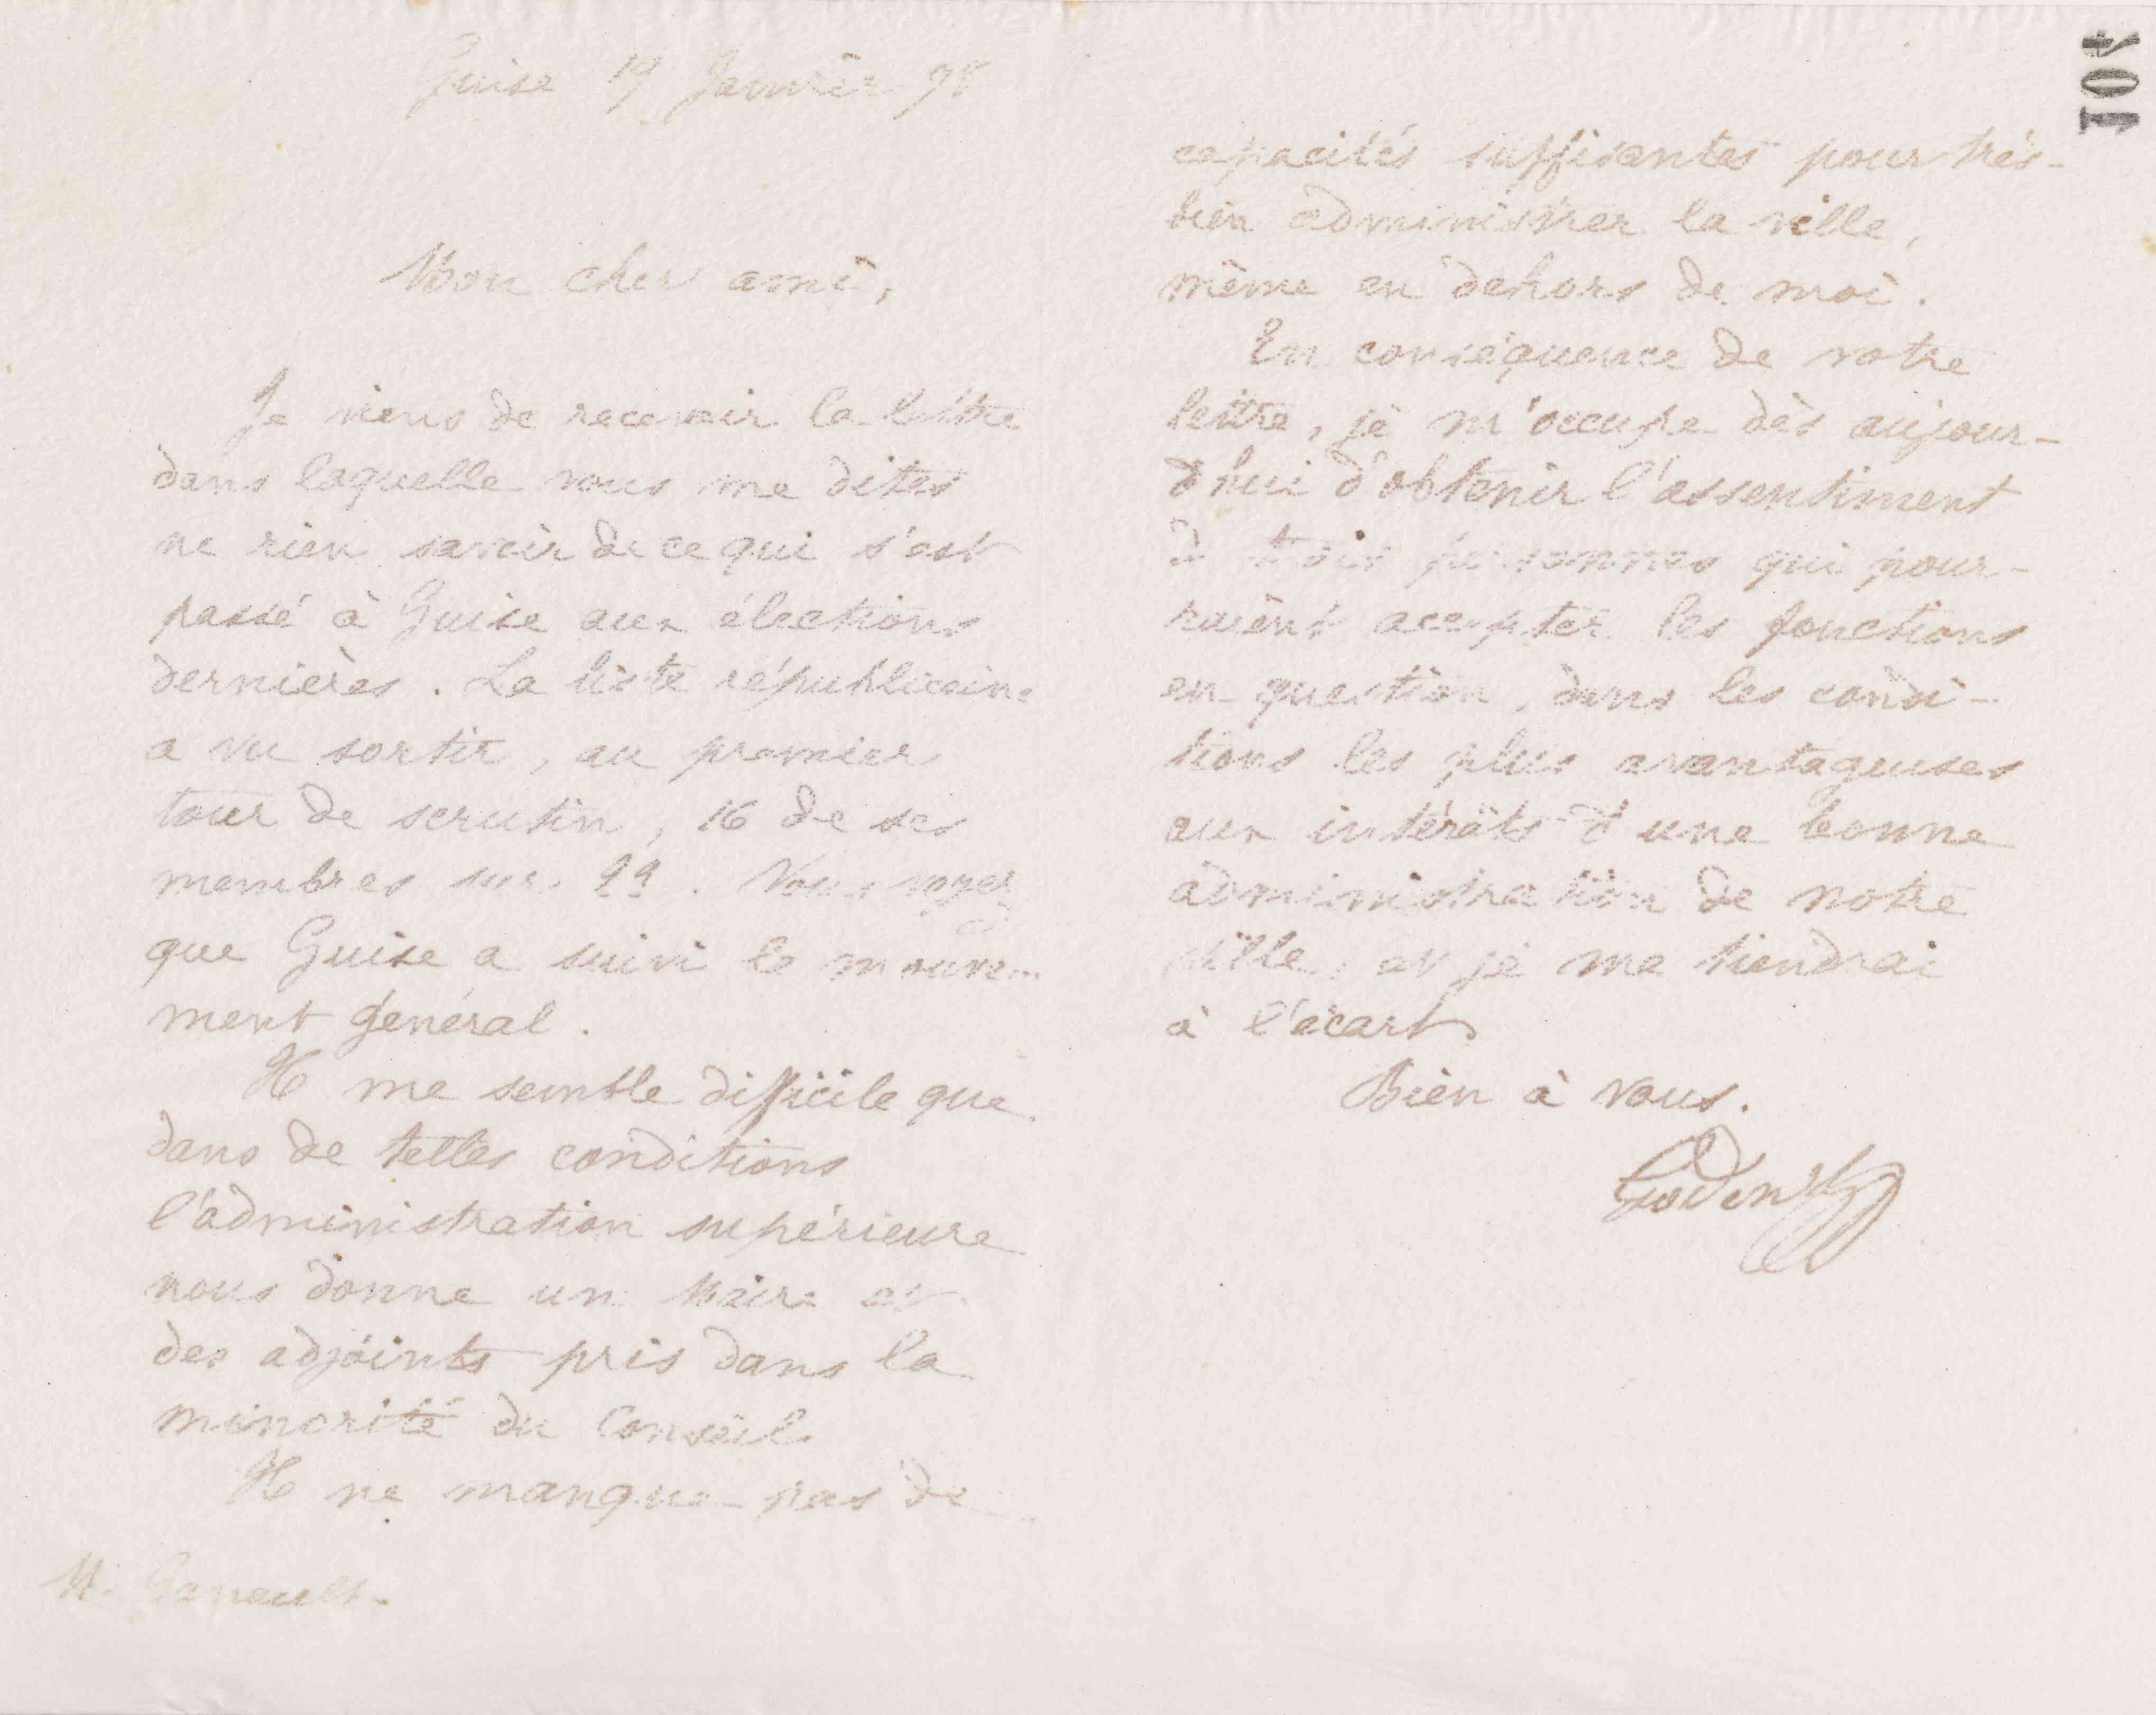 Guise 19 Janvier 78
Mon cher ami,
Je viens de recevoir la lettre
dans laquelle vous me dites
ne rien savoir de ce qui s'est
passé à Guise aux élections
dernières. La liste républicaine
a vu sortir, au premier
tour de scrutin, 16 de ses
membres sur 22. Vous voyez
que Guise a suivi le mouve-
ment général.
Il me semble difficile que
dans de telles conditions
l'administration supérieure
nous donne un Maire et
des adjoints pris dans la
minorité du Conseil.
Il ne manque pas de
M. Ganault.
capacités suffisantes pour très-
bien administrer la ville,
même en dehors de moi.
En conséquence de votre
lettre, je m'occupe dès aujour-
d'hui d'obtenir l'assentiment
de trois personnes qui pour-
raient accepter les fonctions
en question, dans les condi-
tions les plus avantageuses
aux intérêts d'une bonne
administration de notre
ville, et je me tiendrai
à l'écart.
Bien à vous.
Godin
104